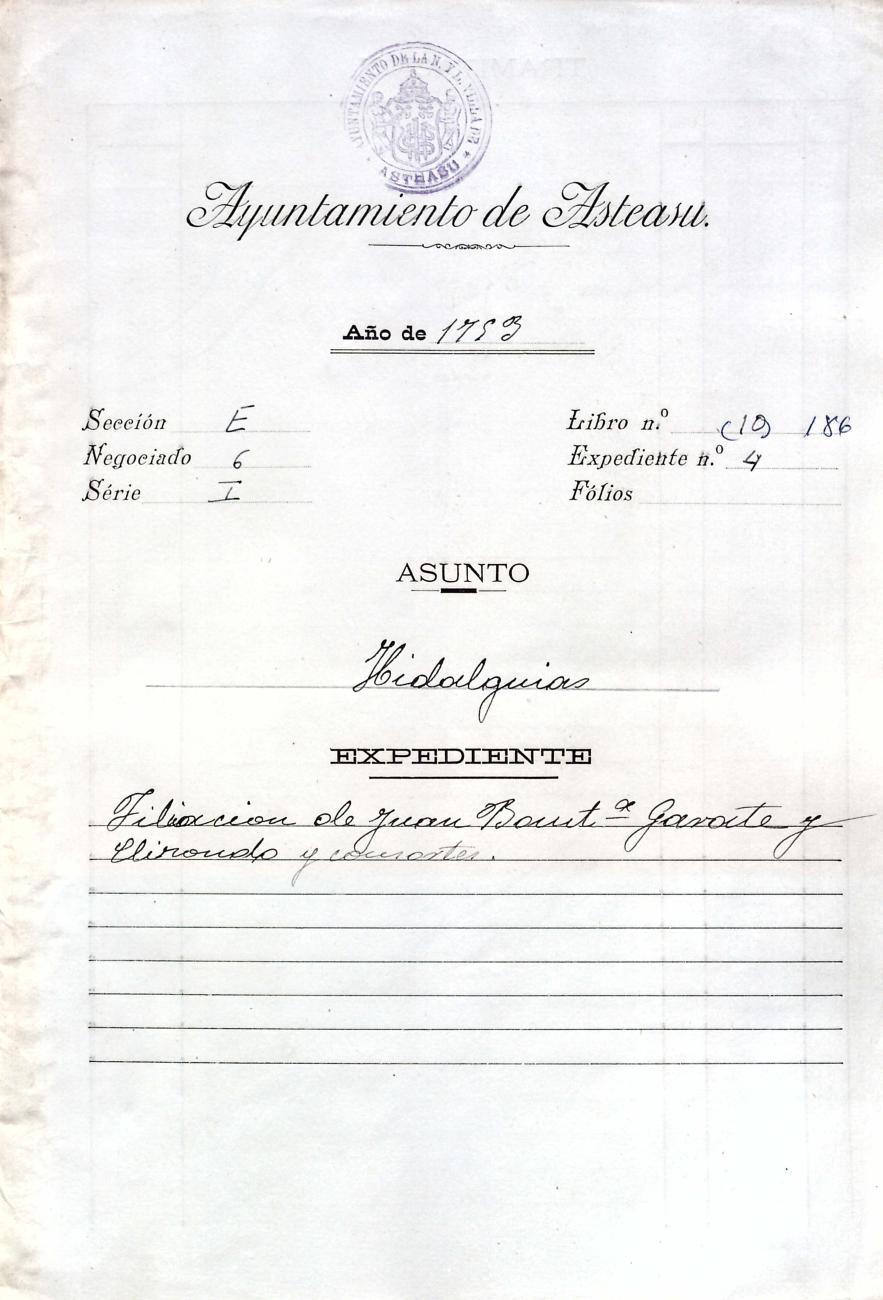 AYUNTAMIENTO DE LA N. Y L. VILLA DE
ASTEASU
Ayuntamiento de Asteasu.
Año de 1753
Sección E
Negociado 6
Série I
Libro n.º (10) 186
Expediente n.º 4
Fólios
ASUNTO
Hidalguias
EXPEDIENTE
Filiacion de Juan Baut.ª Garate y
Elirondo y consortes.